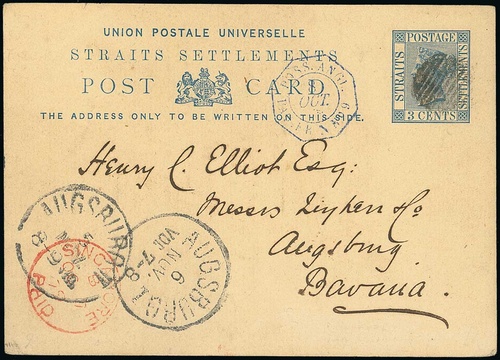 UNION POSTALE UNIVERSELLE
STRAITS SETTLEMENTS
POST CARD
THE ADDRESS ONLY TO BE WRITTEN ON THIS SIDE.
STRAITS
POSTAGE
SETTLEMENTS
3 CENTS
POSS. ANGL.
OCT.
Henry C. Elliot Esq:
Messrs & Co
Augsburg
Bavaria.
AUGSBURG
8
AUGSBURG
6
NOV.
8
SINGAPORE
PAID